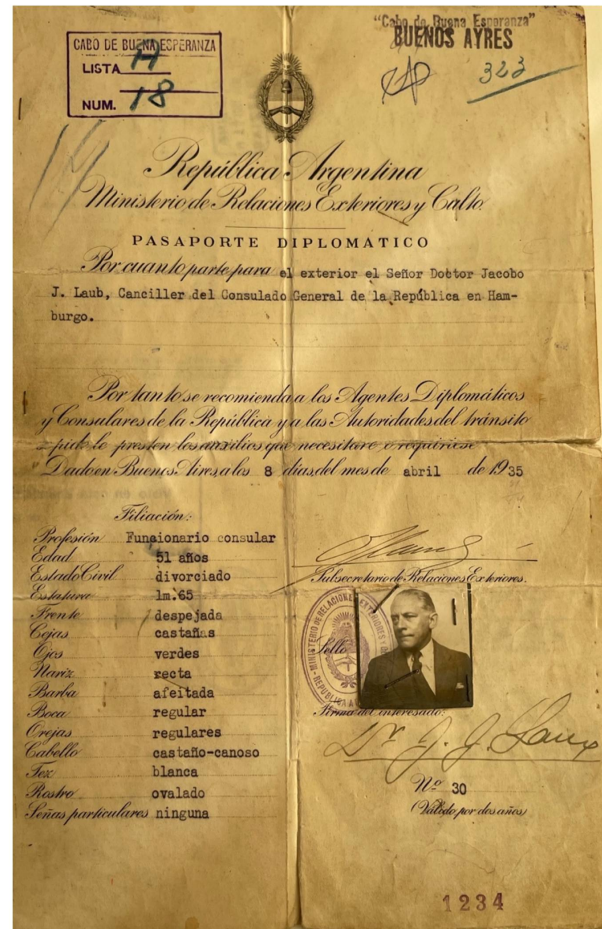 CABO DE BUENA ESPERANZA
LISTA H
NUM. 18
"Cabo de Buena Esperanza"
BUENOS AYRES
323
14
República Argentina
Ministerio de Relaciones Exteriores y Culto.
PASAPORTE DIPLOMATICO
Por cuanto parte para el exterior el Señor Doctor Jacobo
J. Laub, Canciller del Consulado General de la República en Ham-
burgo.
Por tanto se recomienda a los Agentes Diplomáticos
y Consulares de la República y a las Autoridades del tránsito
pide le presten los auxilios que necesitare o requiriese
Dado en Buenos Aires, a los 8 días del mes de abril de 1935
Filiación:
Profesión Funcionario consular
Edad 51 años
Estado Civil divorciado
Estatura 1m.65
Frente despejada
Cejas castañas
Ojos verdes
Nariz recta
Barba afeitada
Boca regular
Orejas regulares
Cabello castaño-canoso
Tez blanca
Rostro ovalado
Señas particulares ninguna
Subsecretario de Relaciones Exteriores.
MINISTERIO DE RELACIONES EXTERIORES Y
REPUBLICA A
Sello
Firma del interesado:
Dr. J. J. Laub
Nº 30
(Válido por dos años)
1234